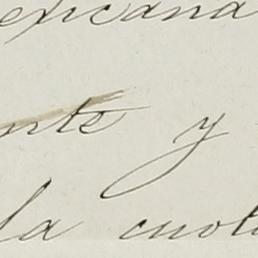 exicana
nte y
la cuot